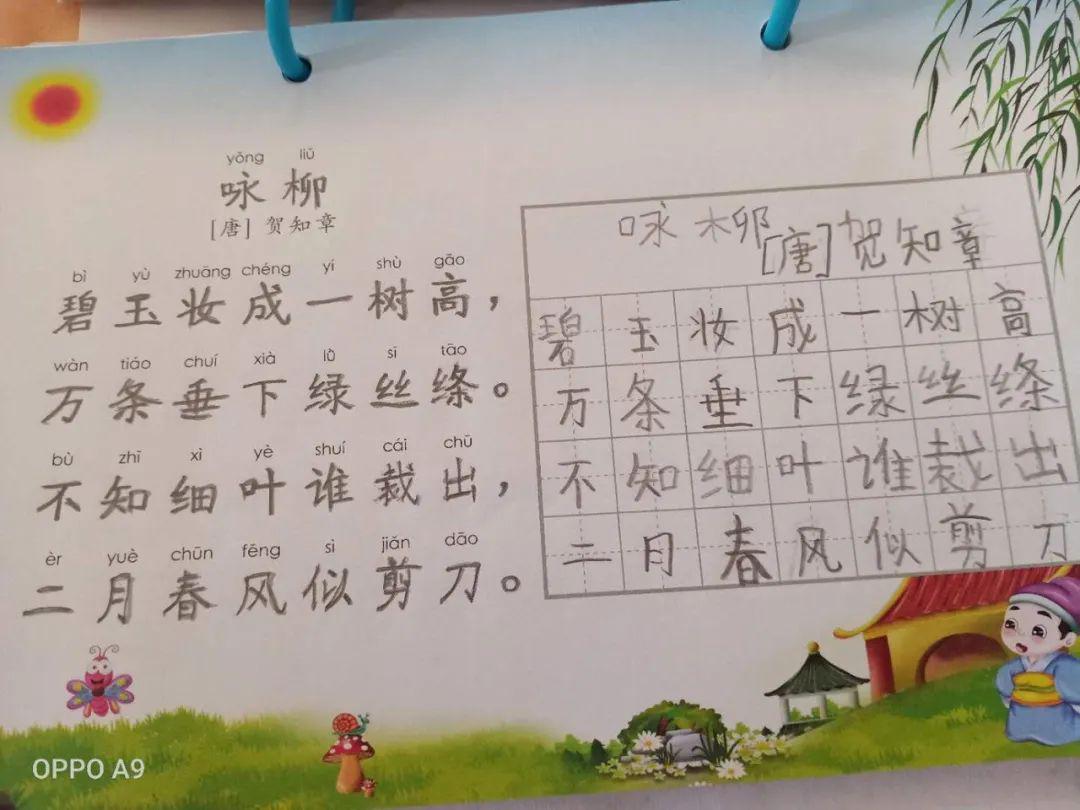 yǒng liǔ
咏柳
[唐] 贺知章
bì yù zhuāng chéng yí shù gāo
碧玉妆成一树高，
wàn tiáo chuí xià lǜ sī tāo
万条垂下绿丝绦。
bù zhī xì yè shuí cái chū
不知细叶谁裁出，
èr yuè chūn fēng sì jiǎn dāo
二月春风似剪刀。
咏柳
[唐]贺知章
碧玉妆成一树高
万条垂下绿丝绦
不知细叶谁裁出
二月春风似剪刀
OPPO A9